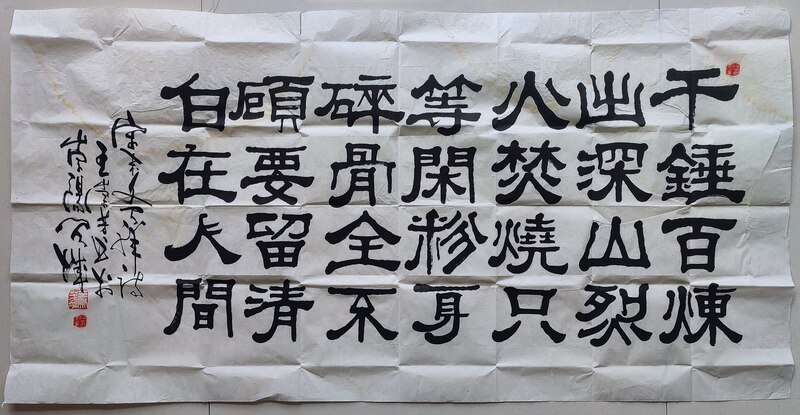 千錘百煉
出深山烈
火焚燒只
等閑粉身
碎骨全不
顧要留清
白在人間